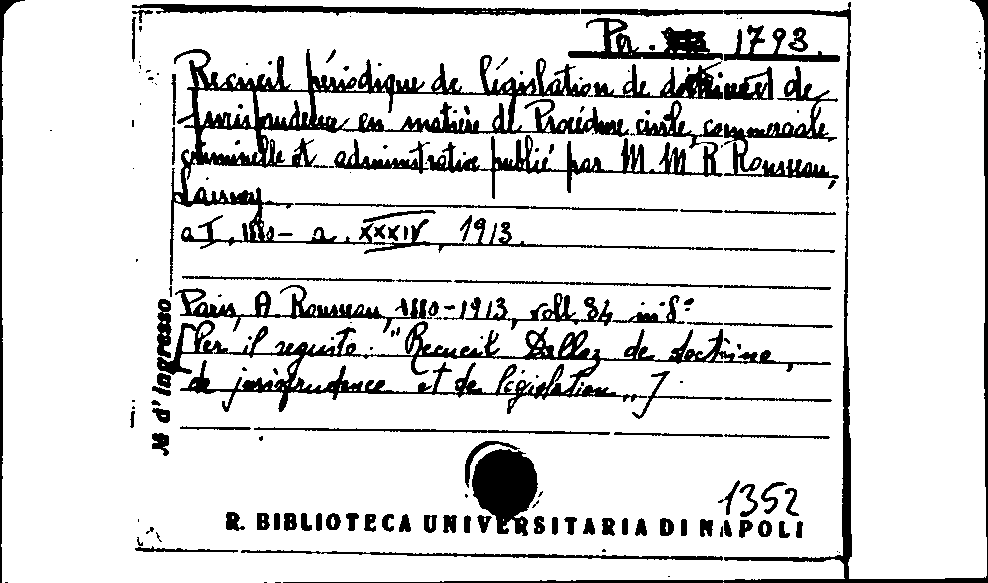 Per. 1793.
Recueil périodique de législation de doctrine et de
Jurisprudence en matière de Procédure civile, commerciale
criminelle et administrative publié par M. M. R Rousseau,
Laisney.
a I, 1880 - a. XXXIV, 1913.
Paris, A. Rousseau, 1880-1913, voll. 34 in 8º
[Per il seguito: "Recueil Dalloz de doctrine,
de jurisprudence et de législation„]
№ d'Ingresso
1352
R. BIBLIOTECA UNIVERSITARIA DI NAPOLI